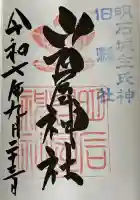 明石城主氏神
旧縣社
岩屋神社
令和七年九月二十三日